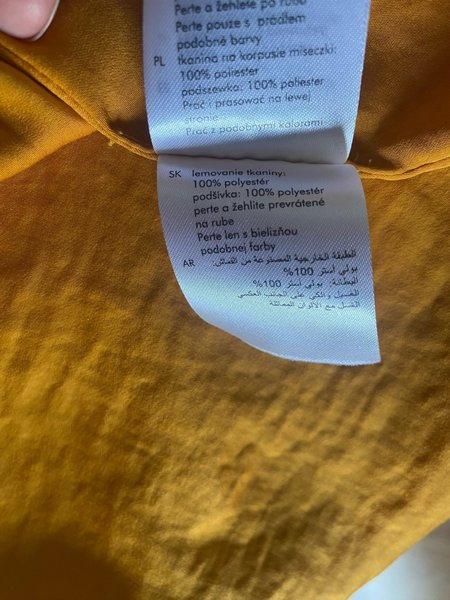 Perte a žehlete po rubu
Perte pouze s prádlem
podobné barvy
PL tkanina na korpusie miseczki:
100% poliester
podszewka: 100% poliester
Prać i prasować na lewej
stronie
Prać z podobnymi kolorami
SK lemovanie tkaniny:
100% polyestér
podšívka: 100% polyestér
perte a žehlite prevrátené
na rube
Perte len s bielizňou
podobnej farby
AR الطبقة الخارجية المصنوعة من القماش:
بولي أستر 100%
البطانة: بولي أستر 100%
الغسيل والكي على الجانب العكسي
الغسل مع الألوان المماثلة